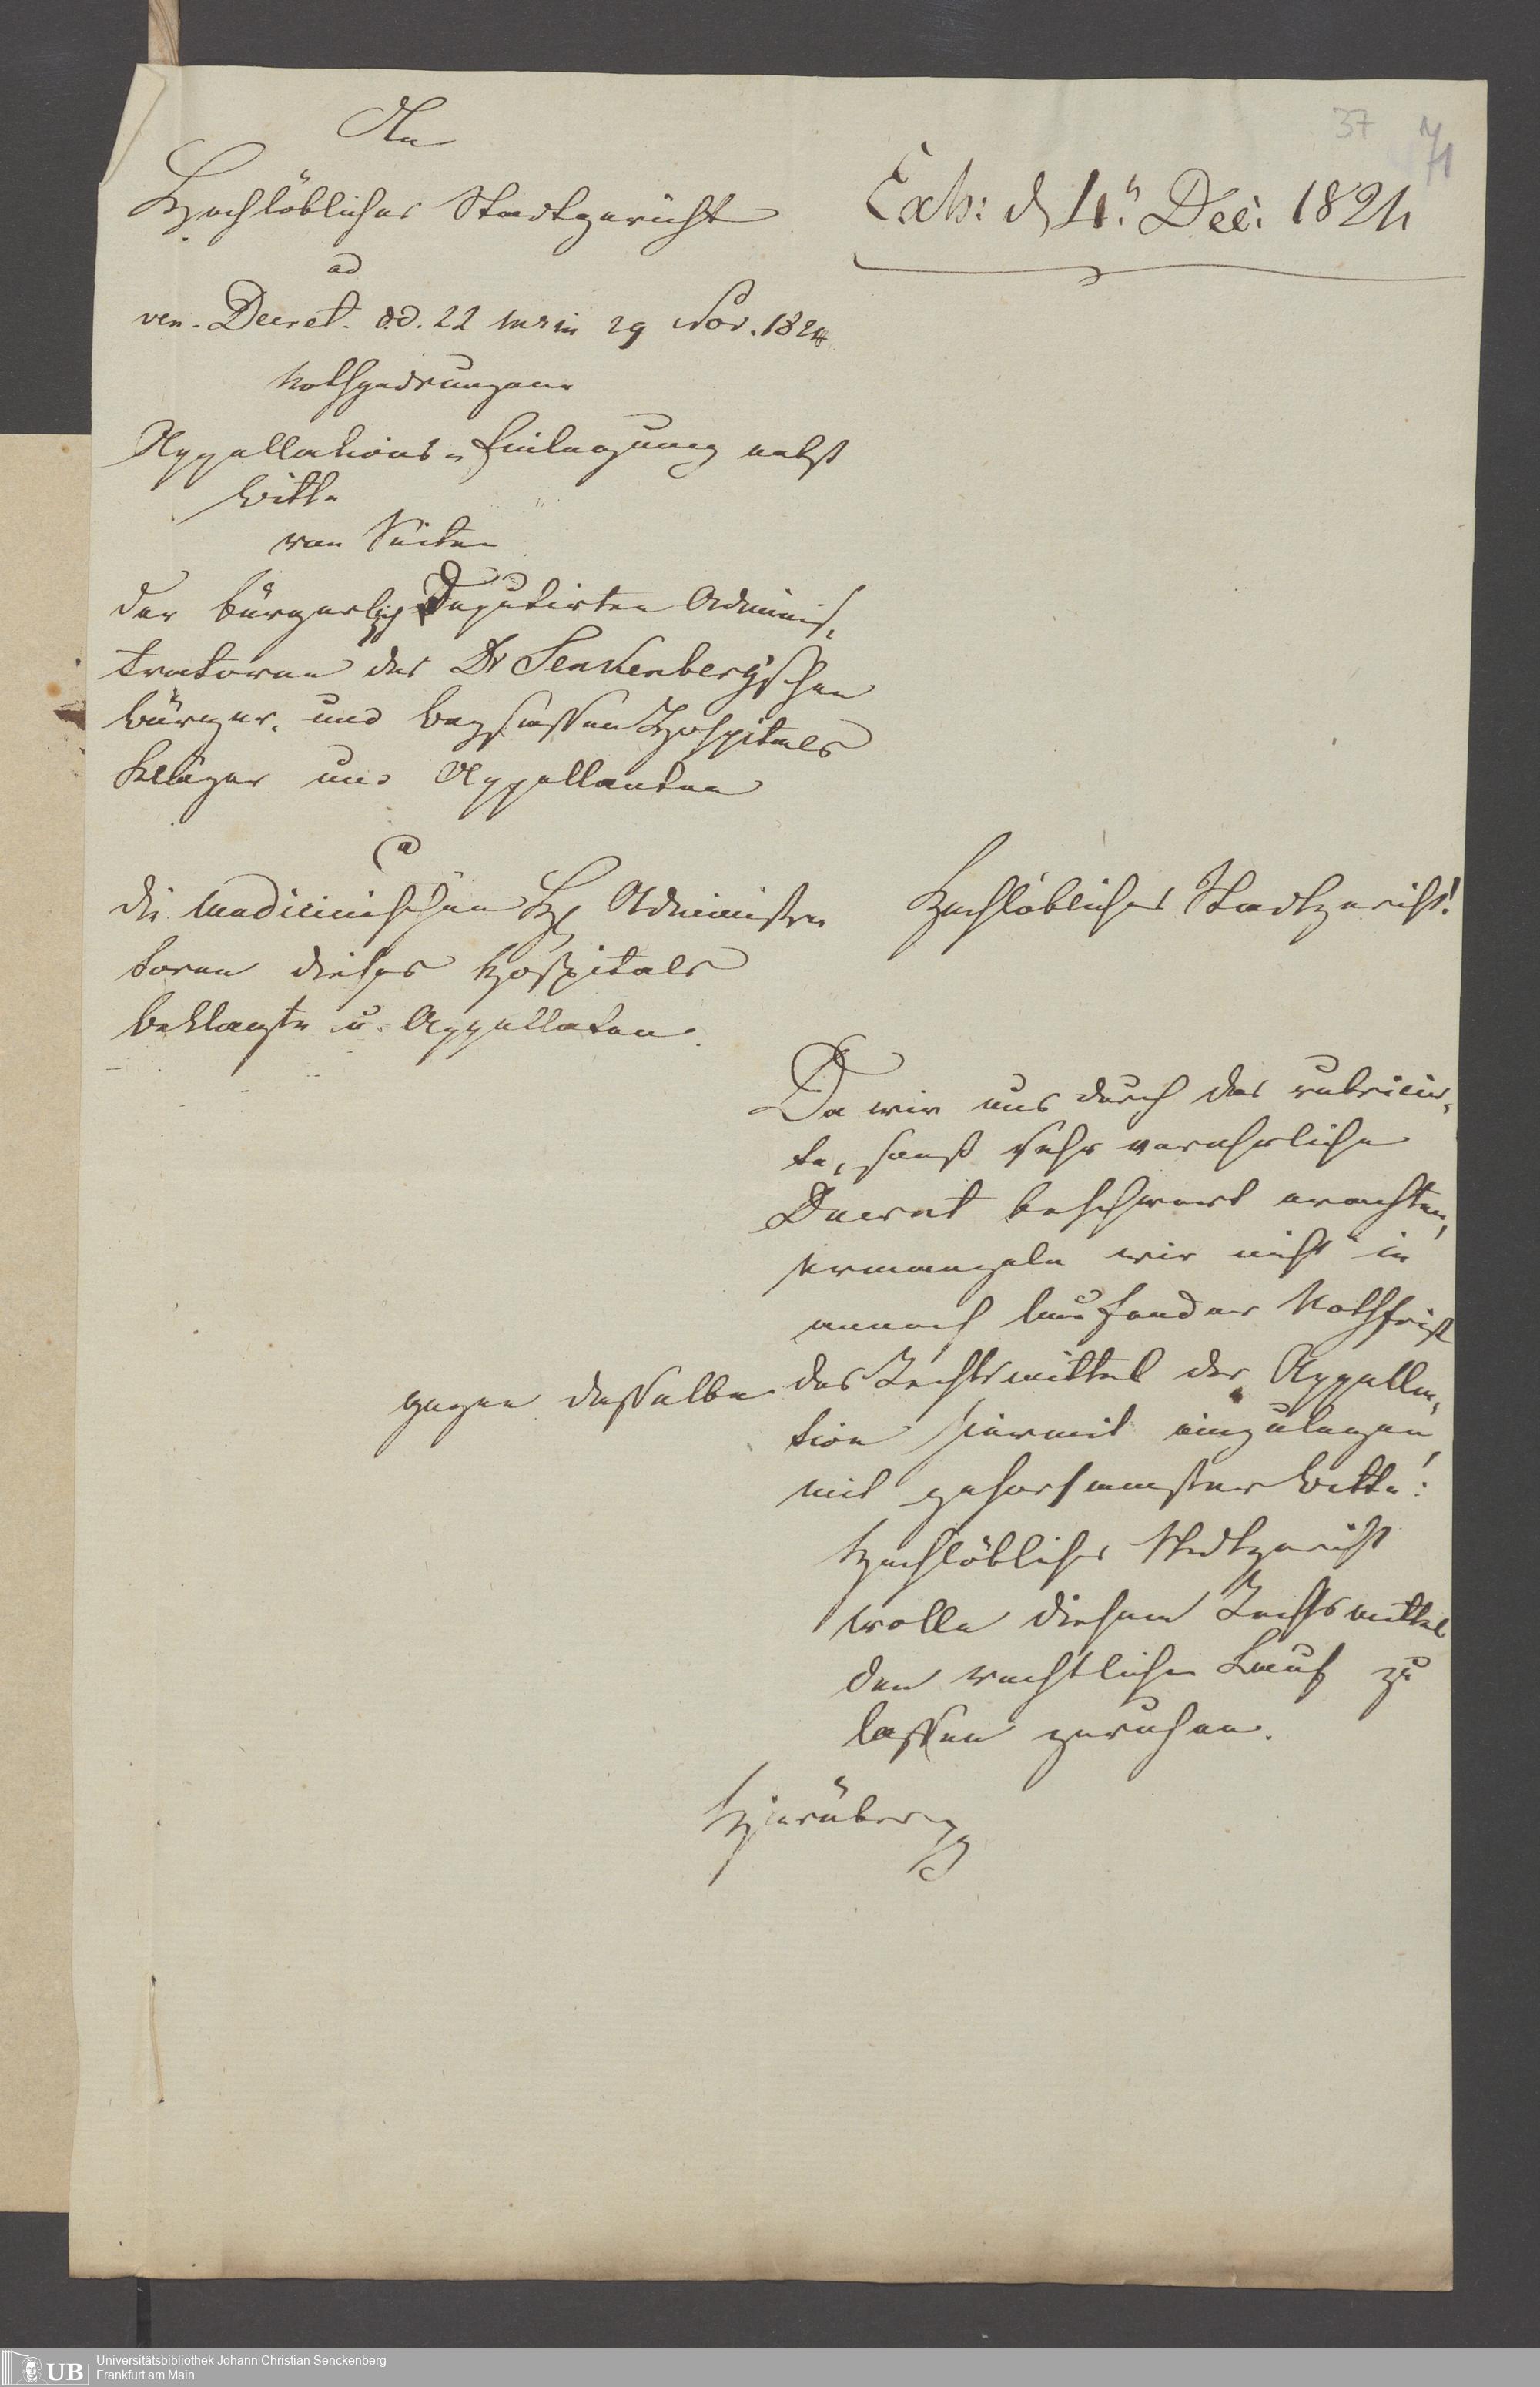 37
71
Exh: d 4.n Dec: 1824
An
Hochlöbliches Stadtgericht
ad
ven. Decret. d.d. 22 insin 29 Nov. 1824
Nothgedrungene
Appellations-Einlegung nebst
Bitte
von Seiten
der bürgerlich Deputirten Adminis,
tratoren des Dr Senkenberg'schen
Bürger- und Beysassen Hospitals
Kläger und Appellanten
ca
die medicinischen HH Administra
toren dieses Hospitals
Beklagte u. Appellaten.
Hochlöbliches Stadtgericht!
Da wir uns durch das rubricir,
te, sonst sehr verehrliche
Decret beschwert erachten,
ermangeln wir nicht in
annoch laufender Nothfrist
gegen dasselbe das Rechtsmittel der Appella,
tion hiermit einzulegen,
mit gehorsamster Bitte:
Hochlöbliches Stadtgericht
wolle diesem Rechtsmittel
den rechtlichen Lauf zu
lassen geruhen.
Hierüber
Universitätsbibliothek Johann Christian Senckenberg
UB
Frankfurt am Main